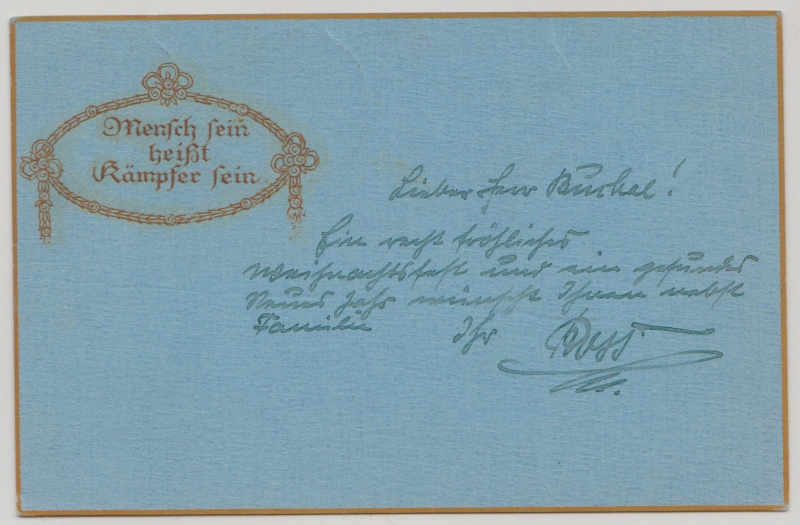 Mensch sein
heißt
Kämpfer sein.
Lieber Herr !
Ein recht fröhliches
Weihnachtsfest und ein gesundes
Neues Jahr wünscht Ihnen nebst
Familie Ihr